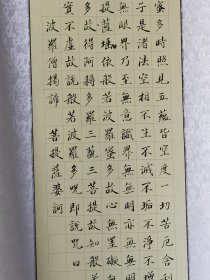 蜜多時照見五蘊皆空度一切苦厄舍利
子是諸法空相不生不滅不垢不淨不增
無眼界乃至無意識界無無明亦無無明
提薩埵依般若波羅蜜多故心無罣礙無
多故得阿耨多羅三藐三菩提故知般若
實不虛故說般若波羅蜜多呪即說呪曰
波羅僧揭諦 菩提薩婆訶